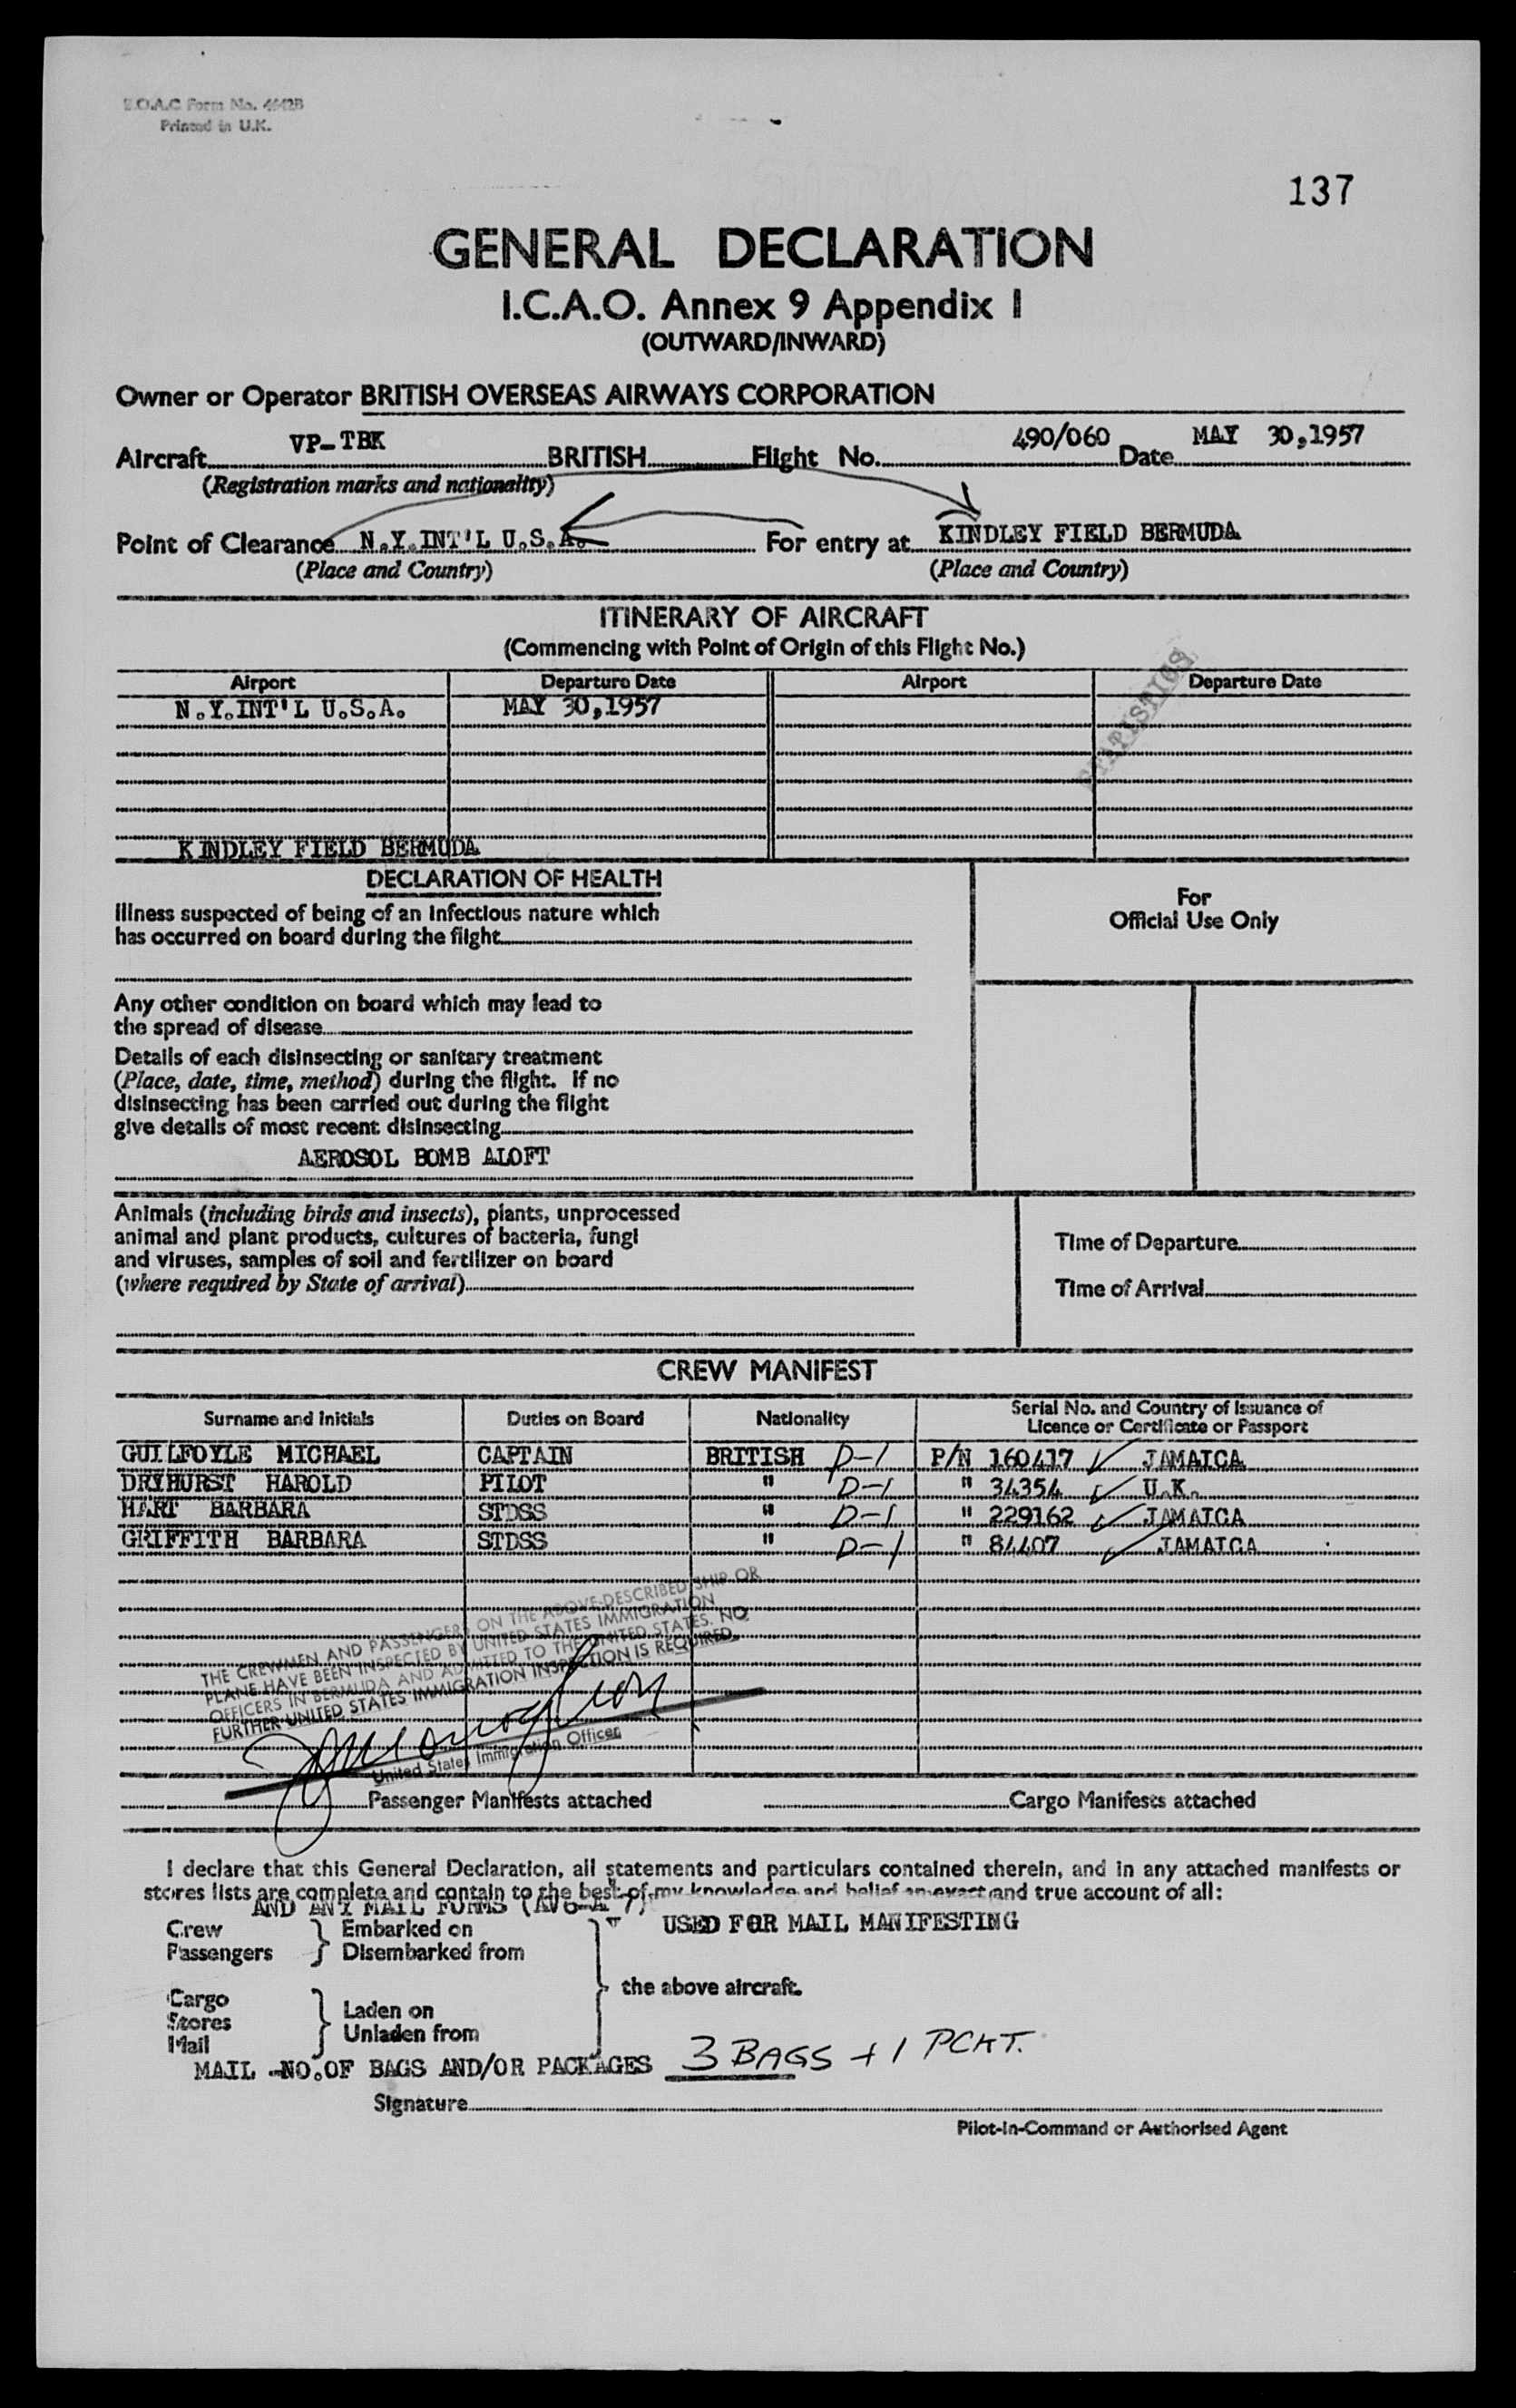 B.O.A.C Form No. 4642B
Printed in U.K.
137
GENERAL DECLARATION
I.C.A.O. Annex 9 Appendix I
(OUTWARD/INWARD)
Owner or Operator BRITISH OVERSEAS AIRWAYS CORPORATION
Aircraft VP-TBK BRITISH Flight No. 490/060 Date MAY 30,1957
(Registration marks and nationality)
Point of Clearance N.Y.INT'L U.S.A. For entry at KINDLEY FIELD BERMUDA
(Place and Country) (Place and Country)
ITINERARY OF AIRCRAFT
(Commencing with Point of Origin of this Flight No.)
Airport Departure Date Airport Departure Date
N.Y.INT'L U.S.A. MAY 30,1957
STATISTICS
KINDLEY FIELD BERMUDA
DECLARATION OF HEALTH
Illness suspected of being of an infectious nature which
has occurred on board during the flight
For
Official Use Only
Any other condition on board which may lead to
the spread of disease
Details of each disinsecting or sanitary treatment
(Place, date, time, method) during the flight. If no
disinsecting has been carried out during the flight
give details of most recent disinsecting
AEROSOL BOMB ALOFT
Animals (including birds and insects), plants, unprocessed
animal and plant products, cultures of bacteria, fungi
and viruses, samples of soil and fertilizer on board
(where required by State of arrival)
Time of Departure
Time of Arrival
CREW MANIFEST
Surname and Initials Duties on Board Nationality Serial No. and Country of Issuance of
Licence or Certificate or Passport
GUILFOYLE MICHAEL CAPTAIN BRITISH D-1 P/N 160417 ✓ JAMAICA
DRYHURST HAROLD PILOT " D-1 " 34354 ✓ U.K.
HART BARBARA STDSS " D-1 " 229162 ✓ JAMAICA
GRIFFITH BARBARA STDSS " D-1 " 84407 ✓ JAMAICA
THE CREWMEN AND PASSENGERS ON THE ABOVE-DESCRIBED SHIP OR
PLANE HAVE BEEN INSPECTED BY UNITED STATES IMMIGRATION
OFFICERS IN BERMUDA AND ADMITTED TO THE UNITED STATES. NO
FURTHER UNITED STATES IMMIGRATION INSPECTION IS REQUIRED.
United States Immigration Officer
Passenger Manifests attached Cargo Manifests attached
I declare that this General Declaration, all statements and particulars contained therein, and in any attached manifests or
stores lists are complete and contain to the best of my knowledge and belief an exact and true account of all:
AND ANY MAIL FORMS (AV6-A 7) USED FOR MAIL MANIFESTING
Crew
Passengers
} Embarked on
Disembarked from
the above aircraft.
Cargo
Stores
Mail
} Laden on
Unladen from
MAIL -NO.OF BAGS AND/OR PACKAGES 3 BAGS + 1 PCKT.
Signature
Pilot-in-Command or Authorised Agent